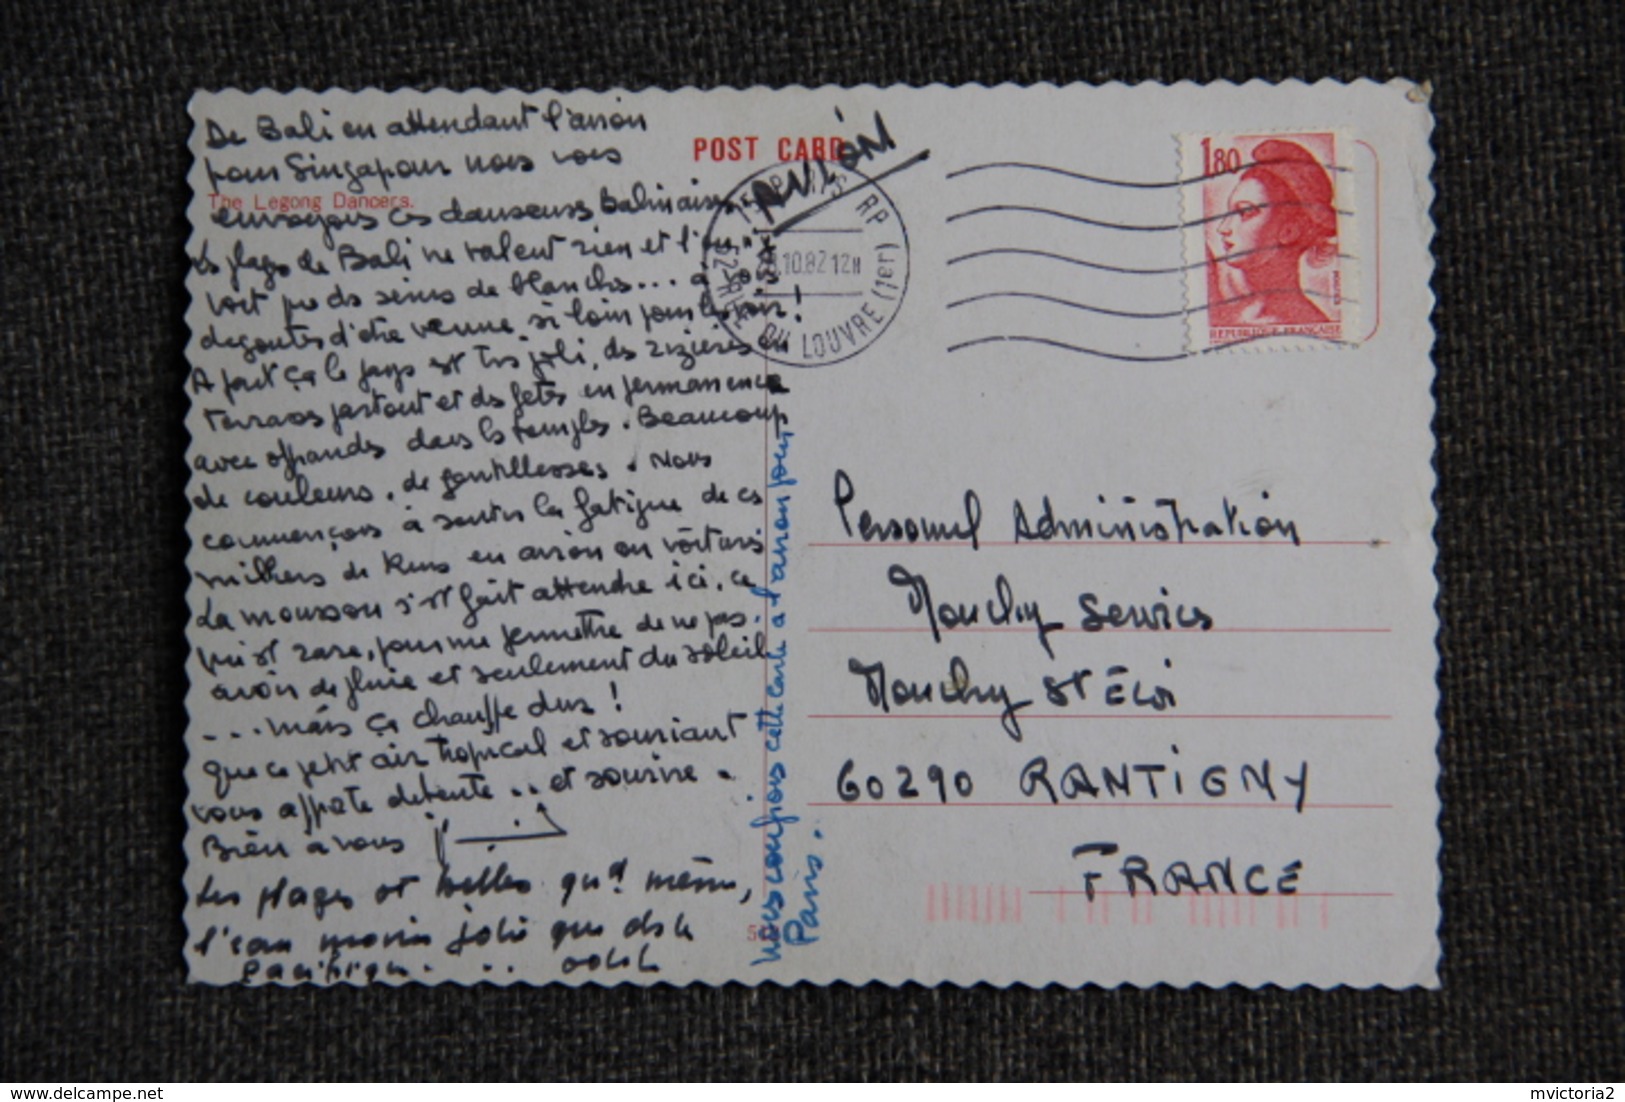 De Bali en attendant l'avion
pour Singapour nous vous
The Legong Dancers.
envoyons ces danseuses Balinaises
Les plages de Bali ne valent rien et l'on n'y
voit pas de seins de blanches... à être
degoutés d'être venus si loin pour les voir!
A part ça le pays est très joli, des rizières en
terrasses partout et des fêtes en permanence
avec offrandes dans les temples. Beaucoup
de couleurs, de gentillesses. Nous
commençons à sentir la fatigue de ces
milliers de Kms en avion ou voitures
La mousson s'est fait attendre ici, ce
qui est rare, pour me permettre de ne pas
avoir de pluie et seulement du soleil
... mais ça chauffe dur!
que ce petit air tropical et souriant
vous apporte detente .. et sourire.
Bien à vous
Les plages et belles qd même,
l'eau moins jolie que ds le
pacifique. ..
POST CARD
AVION
10.82 12H
RUE DU LOUVRE (1er)
PARIS RP
1,80
REPUBLIQUE FRANÇAISE
Nous confions cette carte à l'avion pour
Paris.
Personnel Administration
Mouchy Services
Mouchy St Éloi
60290 RANTIGNY
FRANCE
mvictoria2